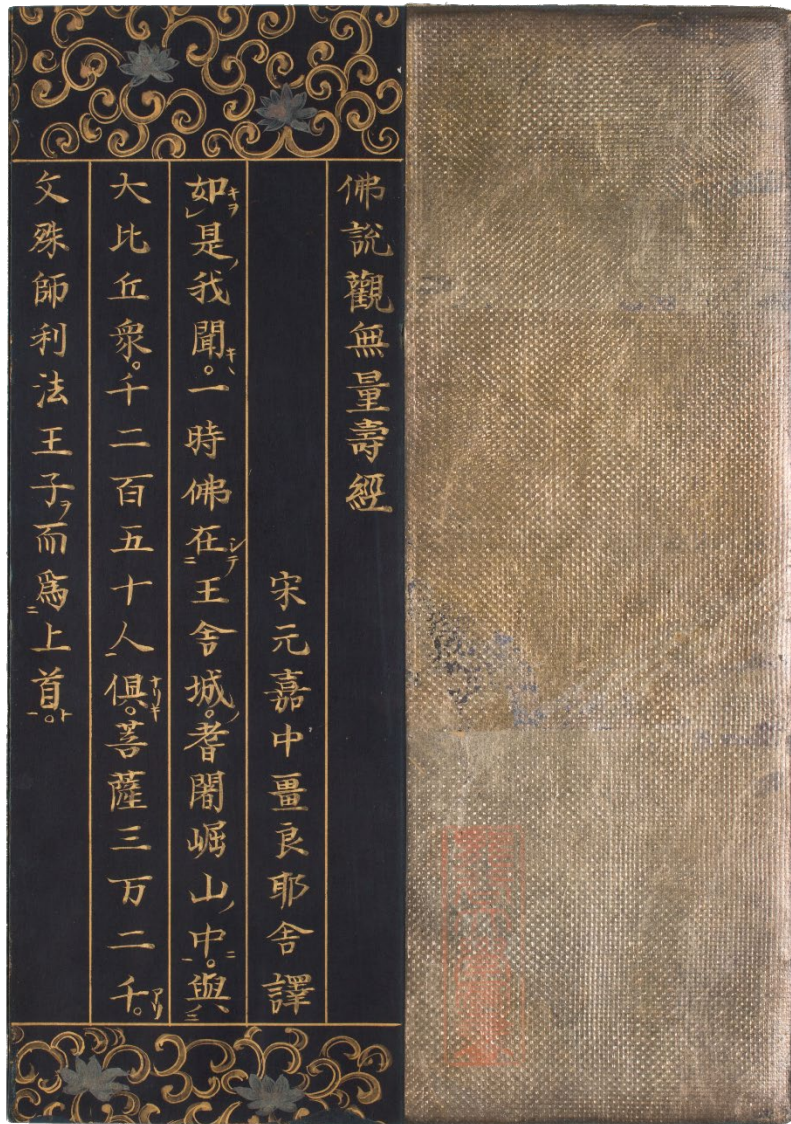 佛說觀無量壽經
宋元嘉中畺良耶舍譯
如是我聞。一時佛在王舍城。耆闍崛山中。與
大比丘衆。千二百五十人俱。菩薩三万二千。
文殊師利法王子而爲上首。